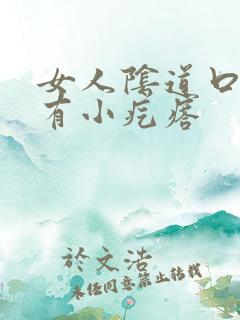 女人陰道口
有小疙瘩
於文浩
未经同意禁止转载